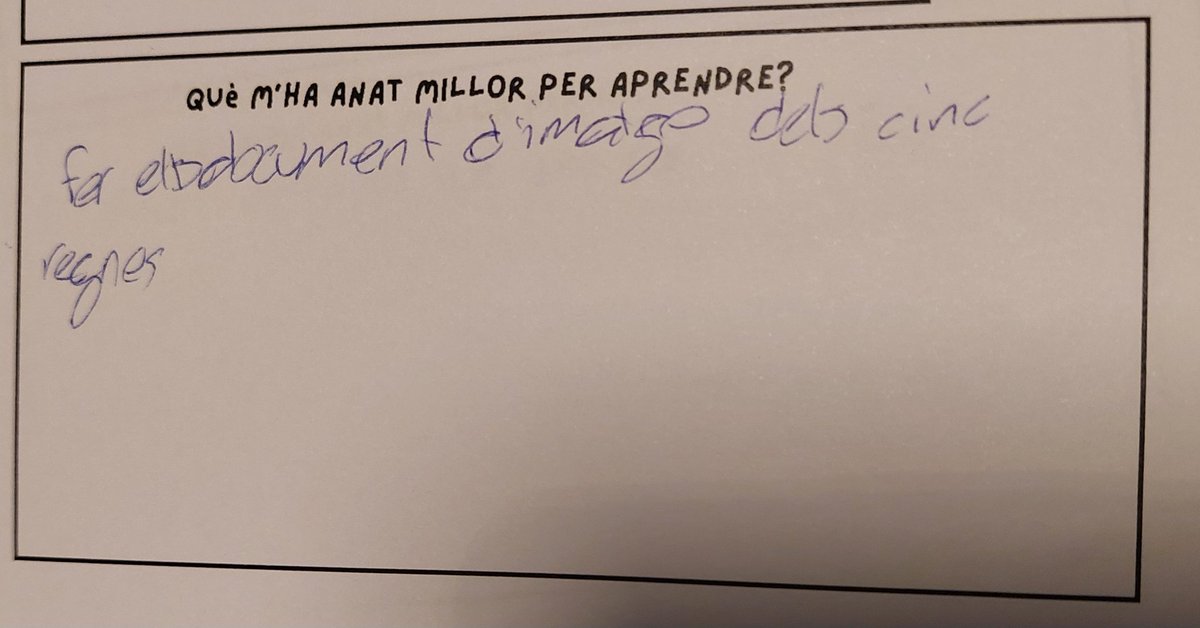 QUè M'HA ANAT MILLOR PER APRENDRE?
fer els document d'imatge dels cinc
regnes